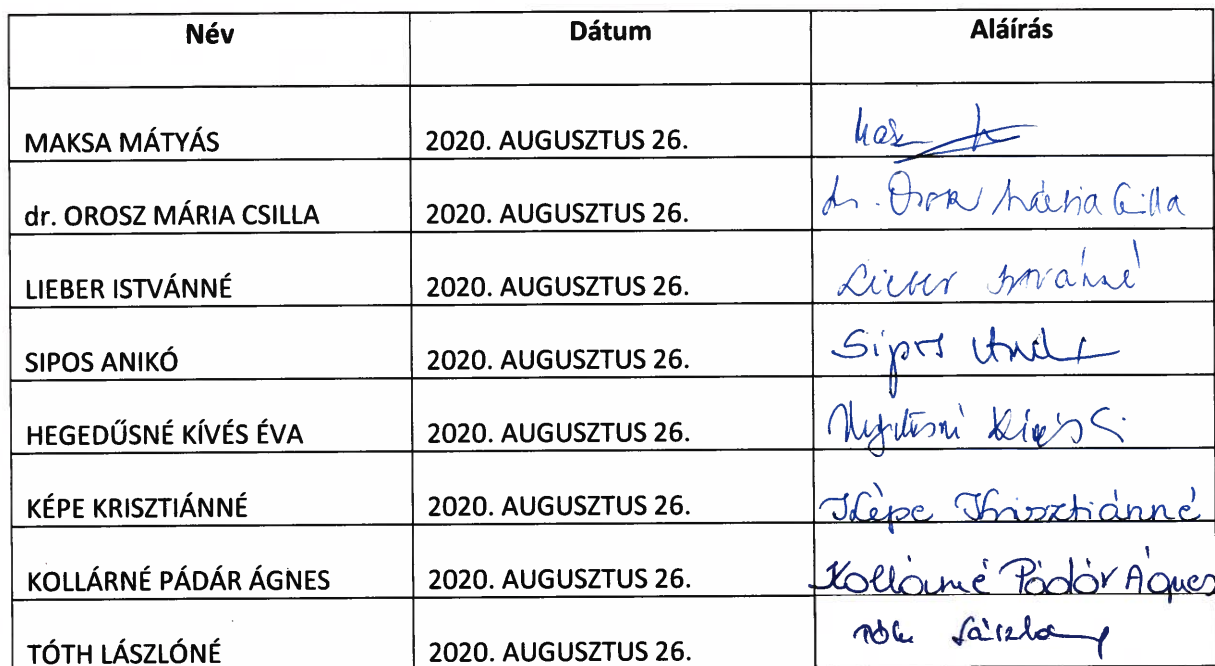 Név Dátum Aláírás
MAKSA MÁTYÁS 2020. AUGUSZTUS 26.
dr. OROSZ MÁRIA CSILLA 2020. AUGUSZTUS 26. dr. Orosz Mária Csilla
LIEBER ISTVÁNNÉ 2020. AUGUSZTUS 26. Lieber Istvánné
SIPOS ANIKÓ 2020. AUGUSZTUS 26. Sipos
HEGEDŰSNÉ KÍVÉS ÉVA 2020. AUGUSZTUS 26.
KÉPE KRISZTIÁNNÉ 2020. AUGUSZTUS 26. Képe Krisztiánné
KOLLÁRNÉ PÁDÁR ÁGNES 2020. AUGUSZTUS 26. Kollárné Pádár Ágnes
TÓTH LÁSZLÓNÉ 2020. AUGUSZTUS 26.